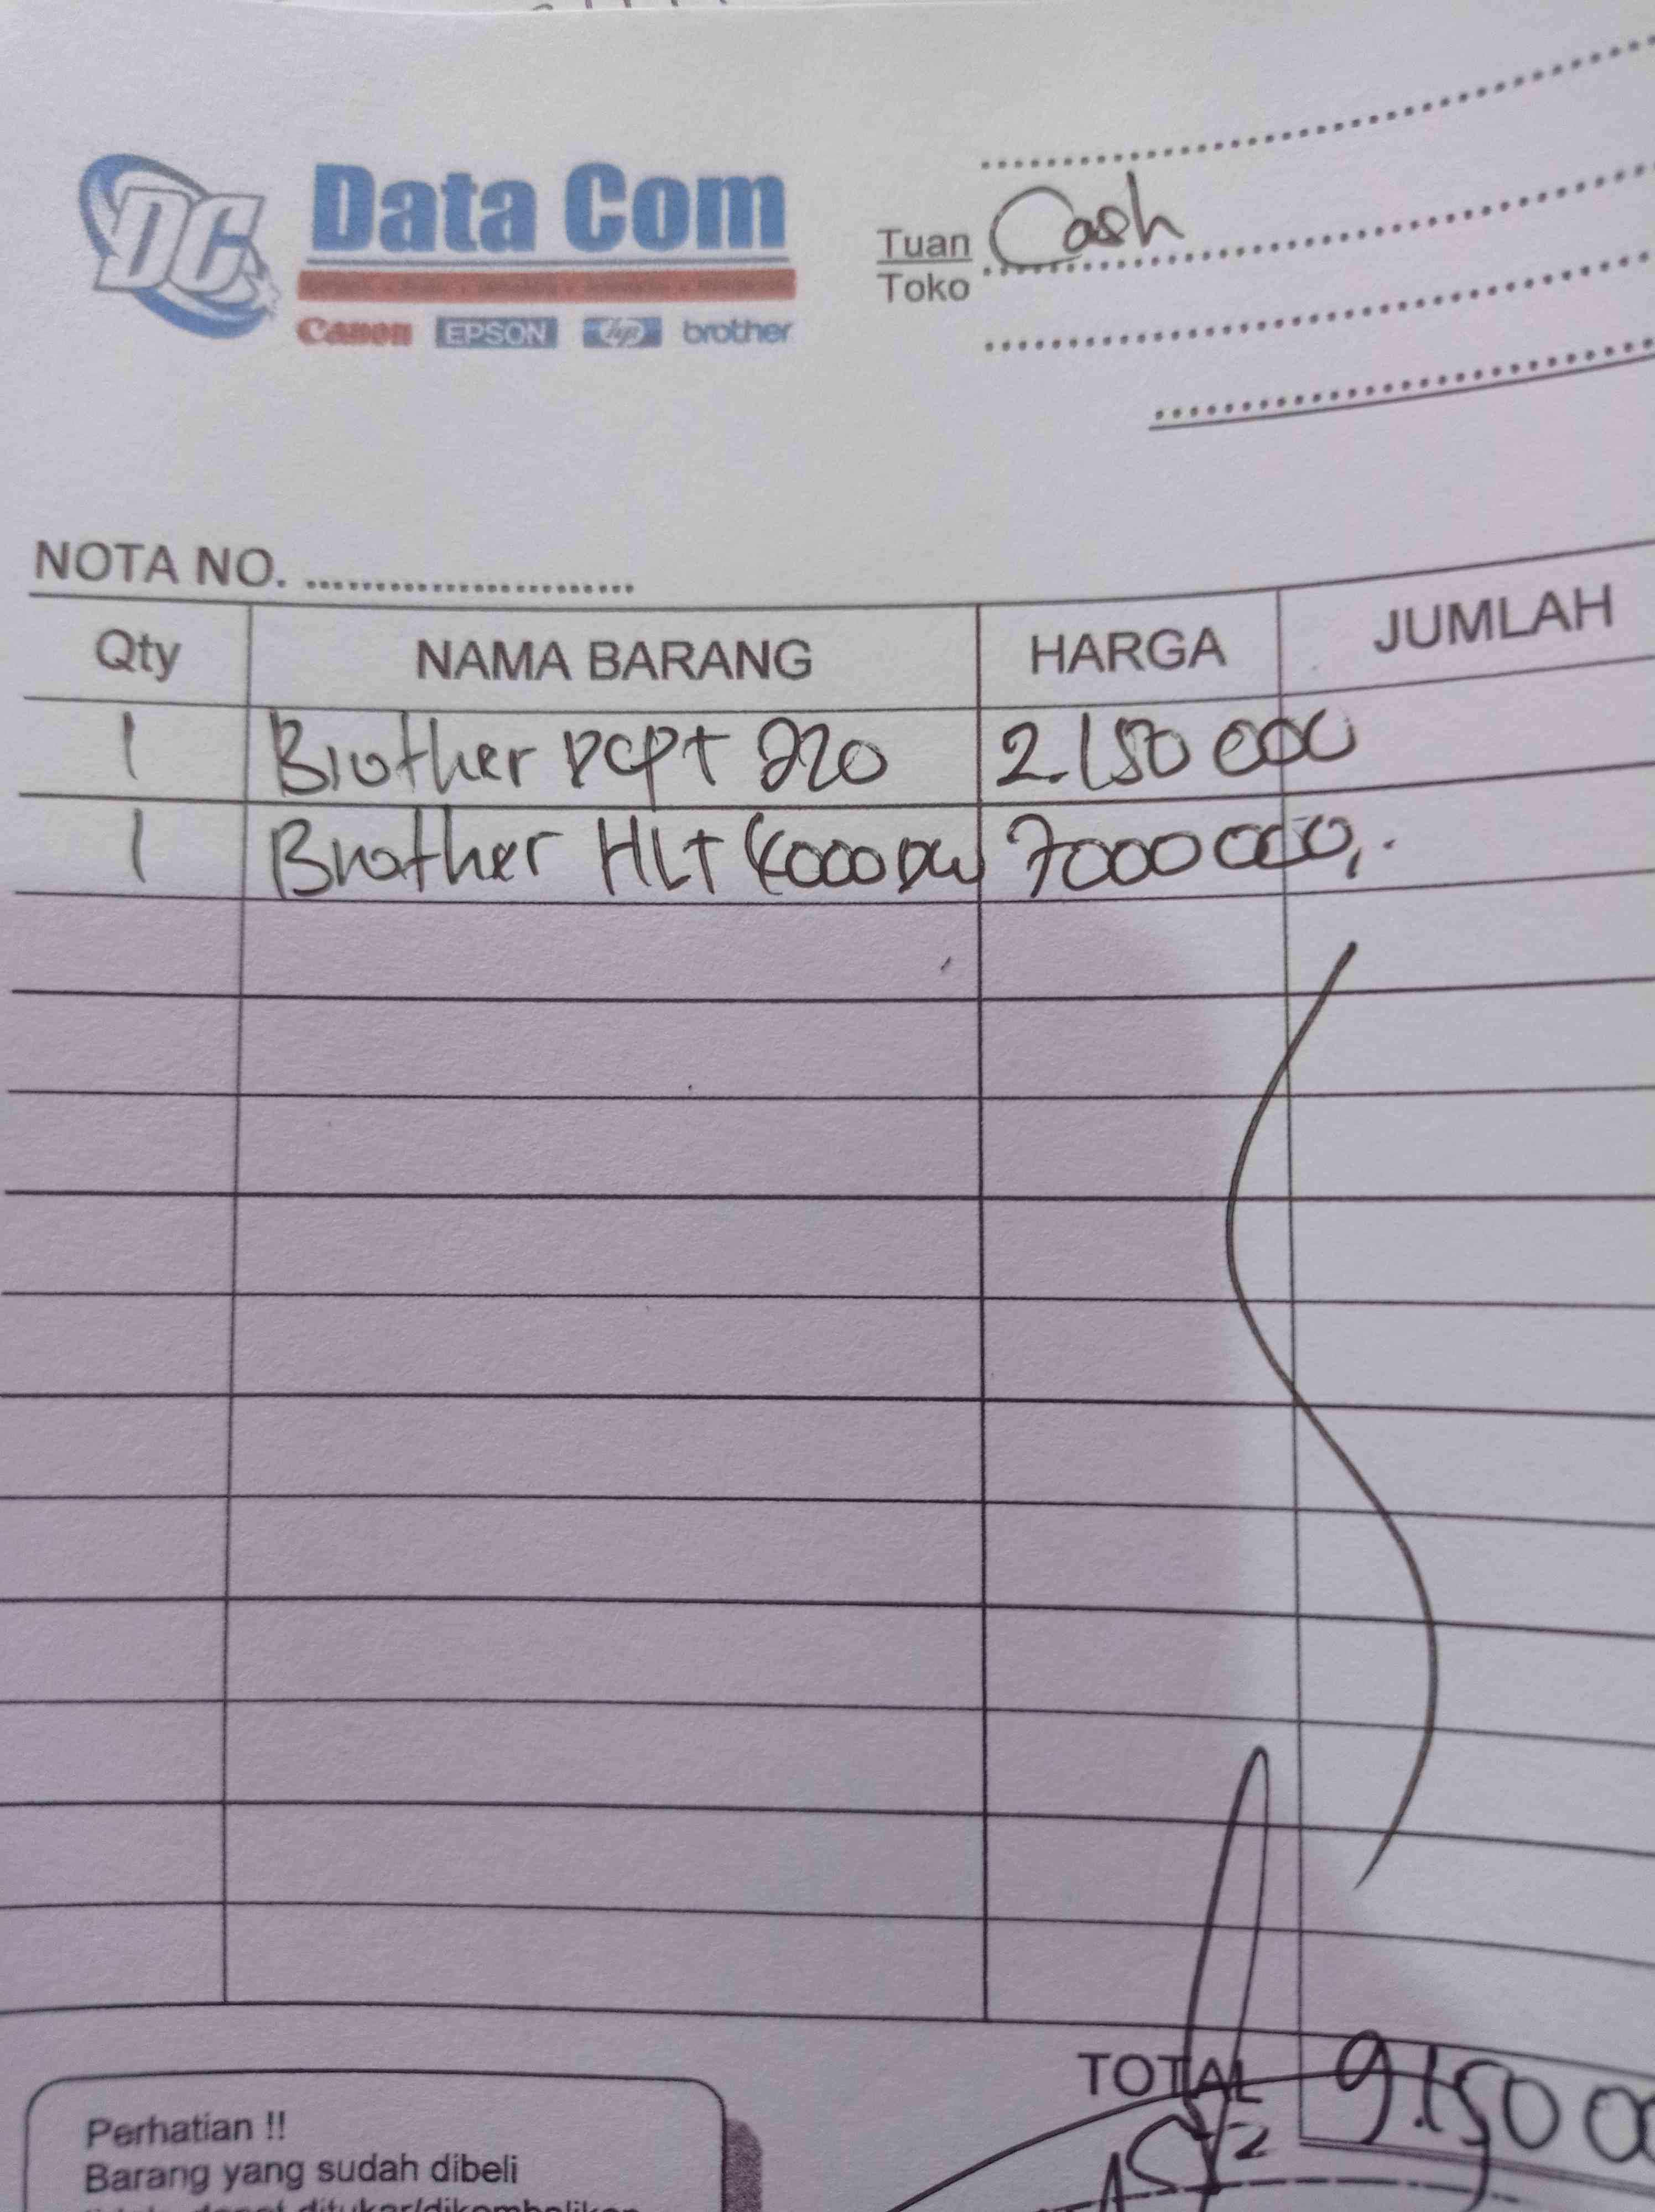 DC
Data Com
Canon EPSON hp brother
Tuan Cash
Toko
NOTA NO.
Qty NAMA BARANG HARGA JUMLAH
1 Brother DCPT 220 2.150 000
1 Brother HLT 4000 DW 7000 000,-
TOTAL 9.150 00
Perhatian !!
Barang yang sudah dibeli
tidak dapat ditukar/dikembalikan